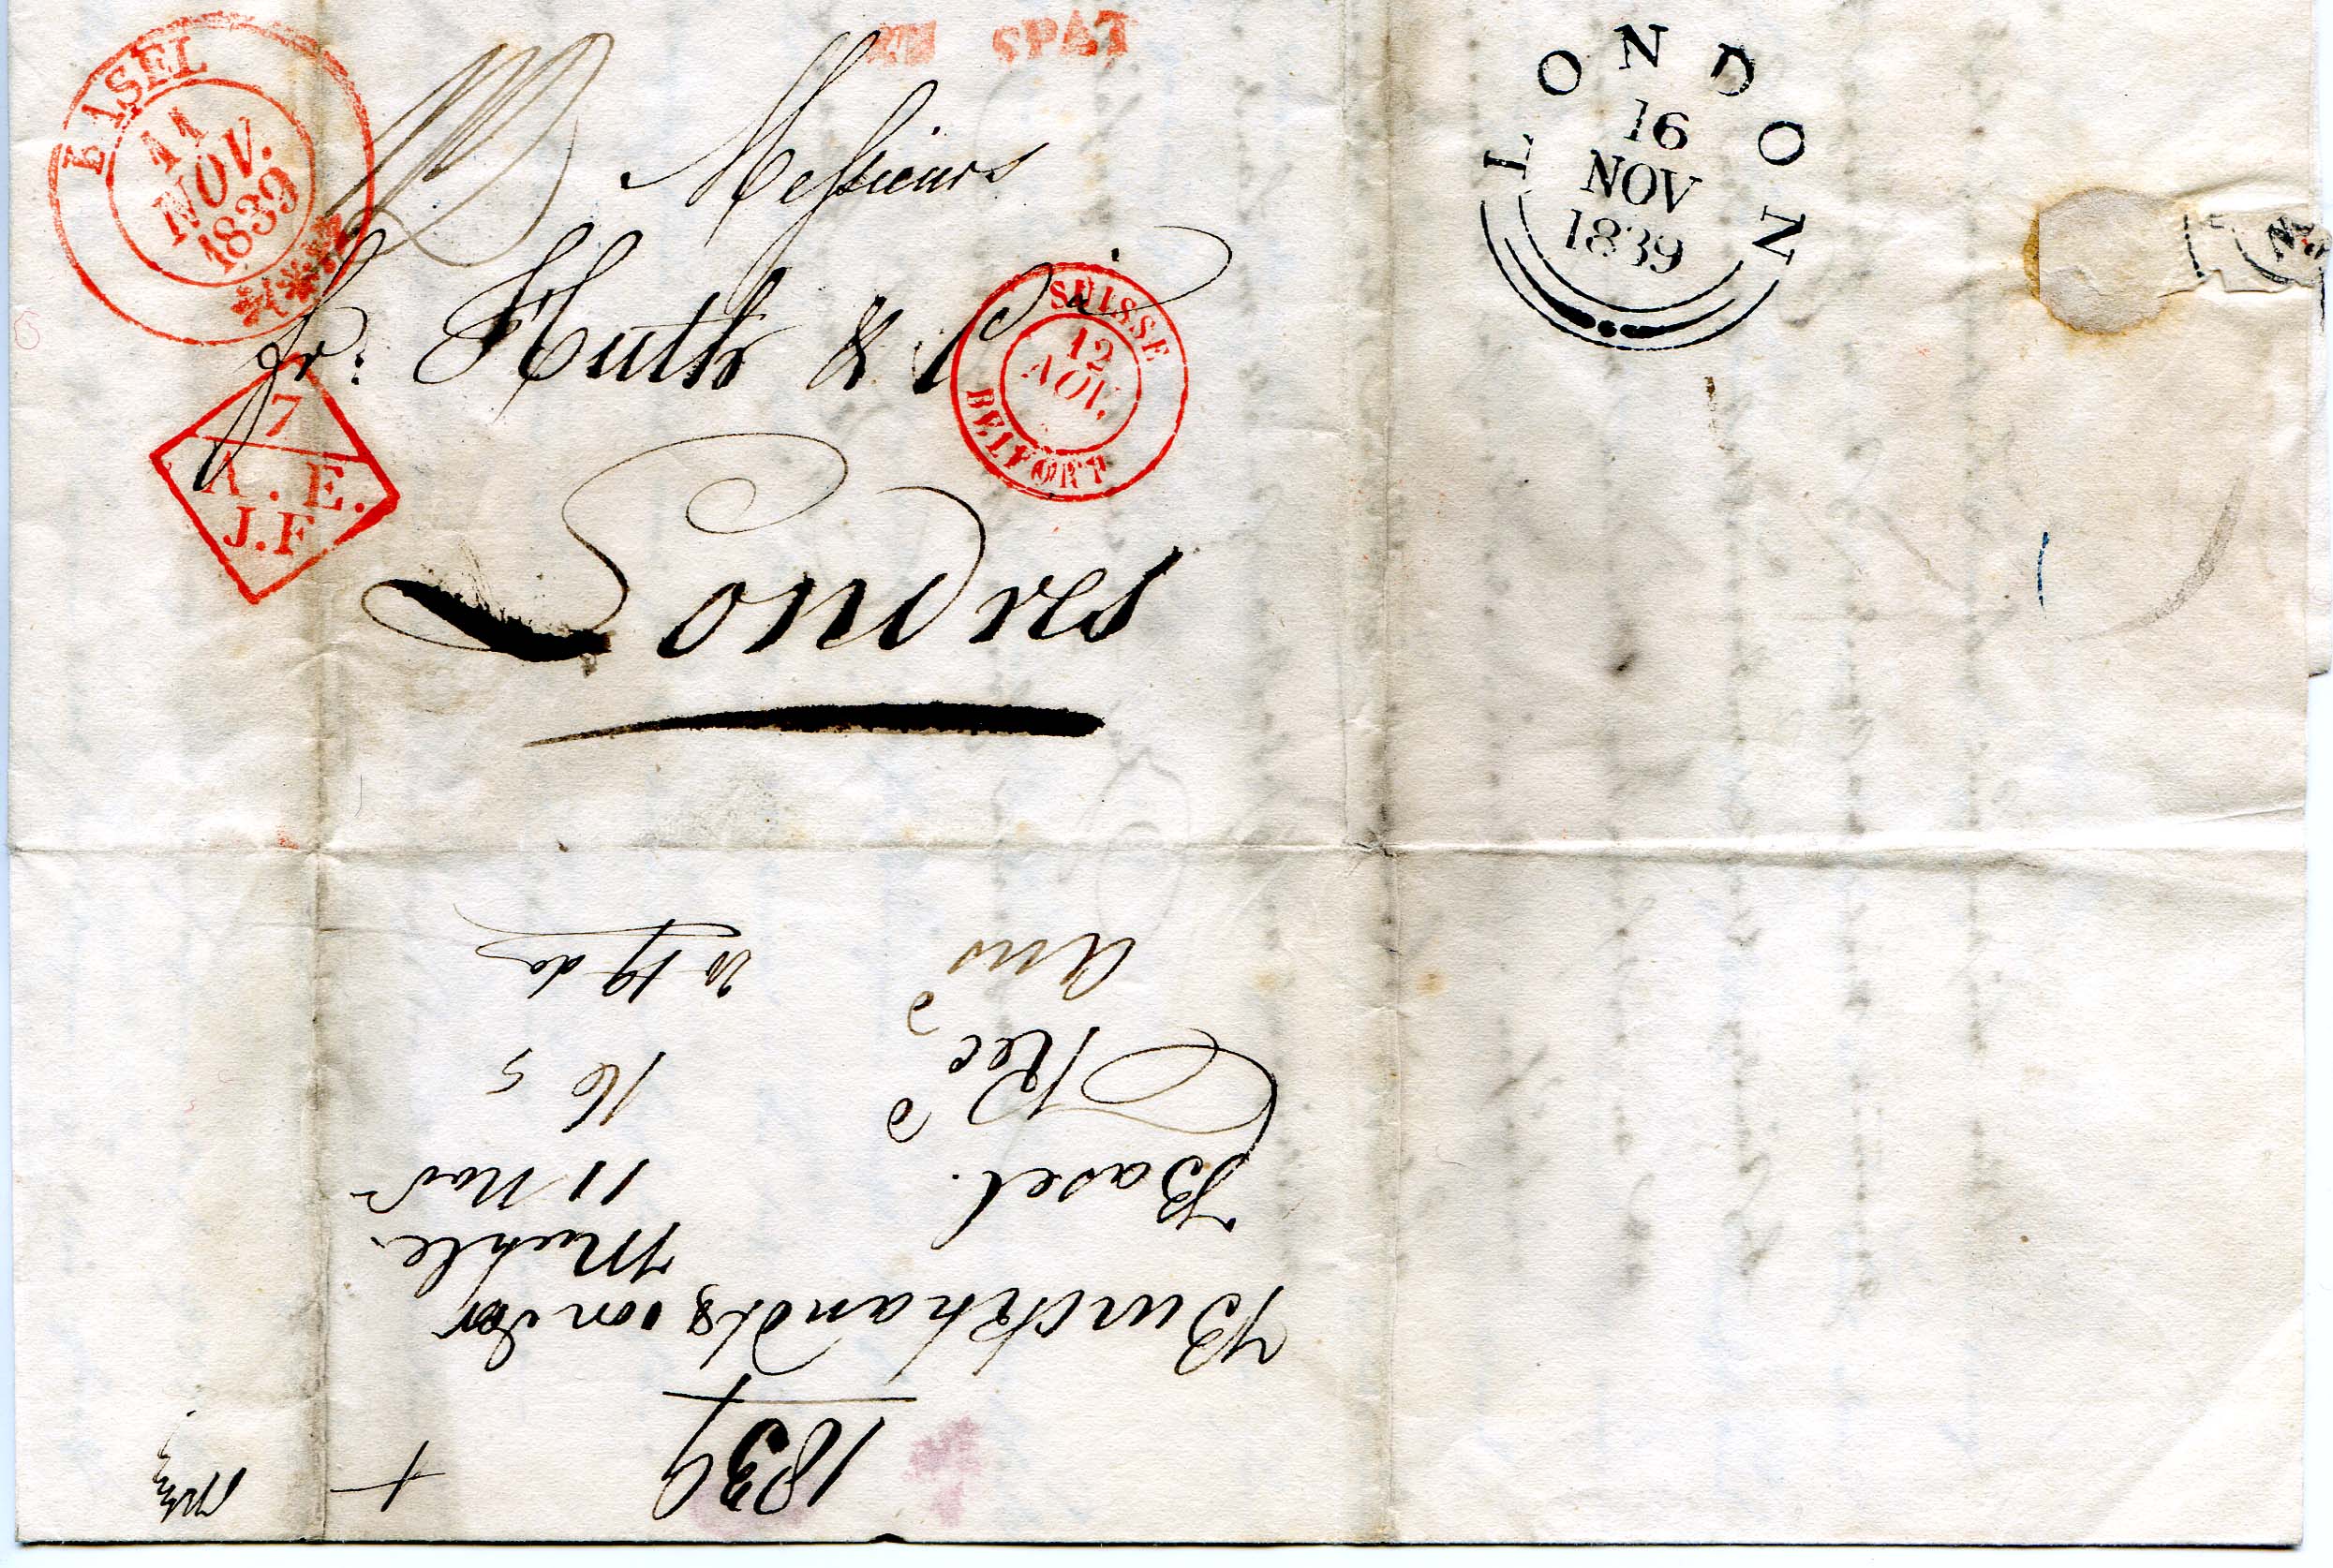 BASEL
11
NOV.
1839
SPÄT
Messieurs
fr: Huth & Cie
SUISSE
12
NOV.
BELFORT
7
A. E.
J.F
Londres
LONDON
16
NOV
1839
1839
Burckhardts von der
Muehle
Basel. 11 Nov
Recd 16 5
Ans